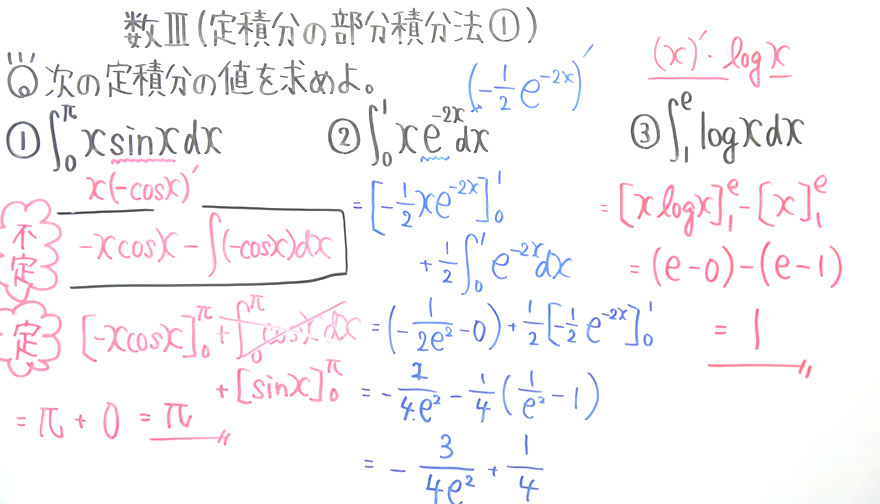 数Ⅲ(定積分の部分積分法①)
次の定積分の値を求めよ。
① ∫₀^π x sinx dx
x(-cosx)′
不定
-xcosx - ∫(-cosx)dx
定
[-xcosx]₀^π + ∫₀^π cosx dx
+ [sinx]₀^π
= π + 0 = π
(-1/2 e^{-2x})′
② ∫₀¹ x e^{-2x} dx
= [-1/2 xe^{-2x}]₀¹
+ 1/2 ∫₀¹ e^{-2x} dx
= (-1/2e² - 0) + 1/2 [-1/2 e^{-2x}]₀¹
= - 2/4e² - 1/4 (1/e² - 1)
= - 3/4e² + 1/4
(x)′· logx
③ ∫₁^e logx dx
= [x logx]₁^e - [x]₁^e
= (e-0)-(e-1)
= 1